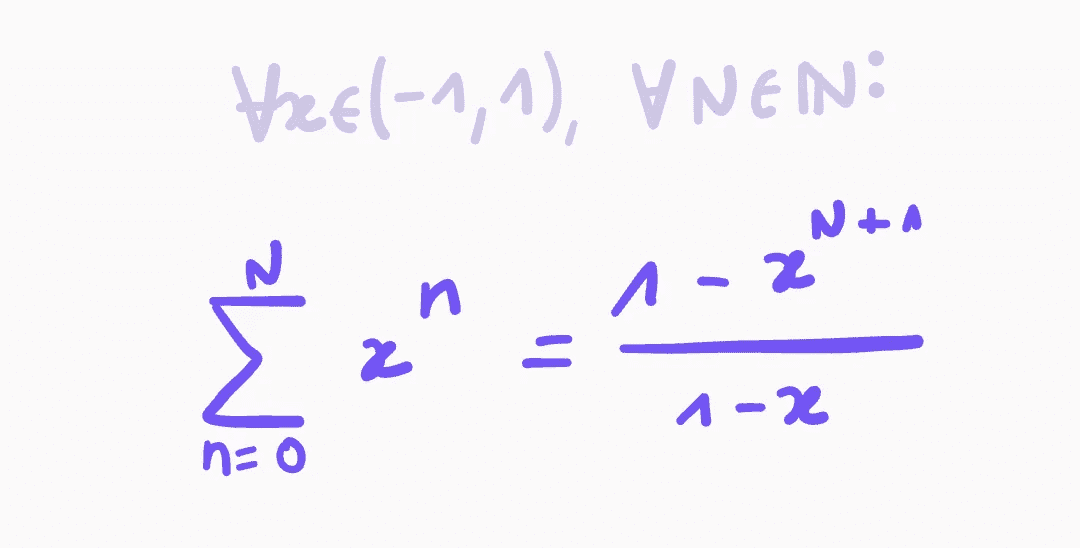 ∀x∈(-1,1), ∀N∈ℕ:
∑_{n=0}^{N} x^n = \frac{1 - x^{N+1}}{1-x}